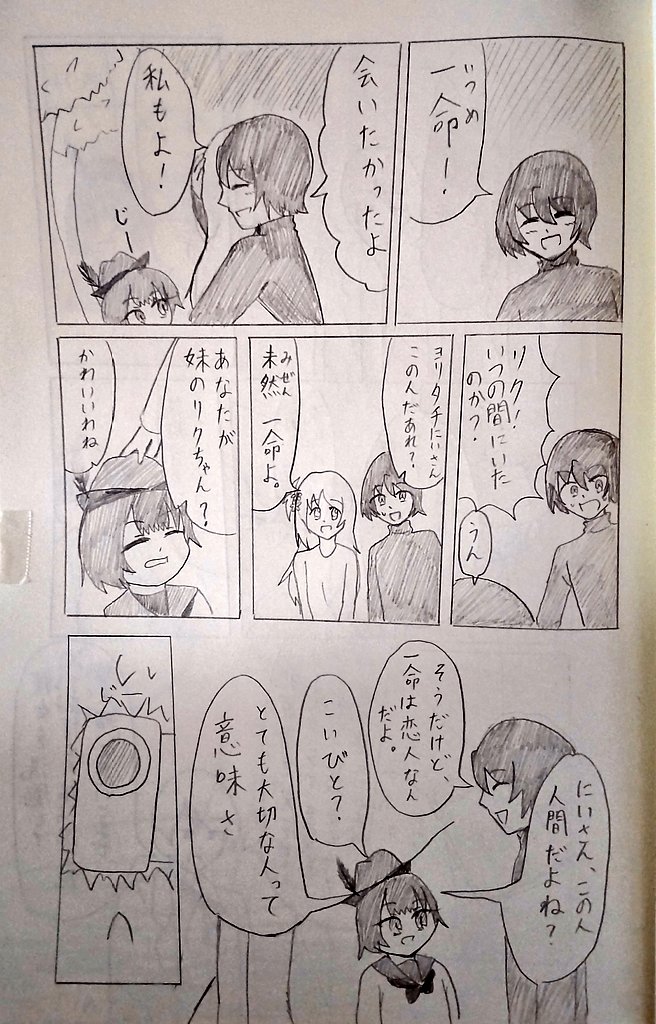 いつめ
一命！
会いたかったよ
私もよ！
じー
リク！
いつの間にいた
のか？
うん
ヨリタチにいさん
このんだあれ？
みぜん
未然 一命よ。
あなたが
妹のリクちゃん？
かわいいわね
にいさん、このん
人間だよね？
そうだけど、
一命は恋人なん
だよ。
こいびと？
とても大切な人って
意味さ